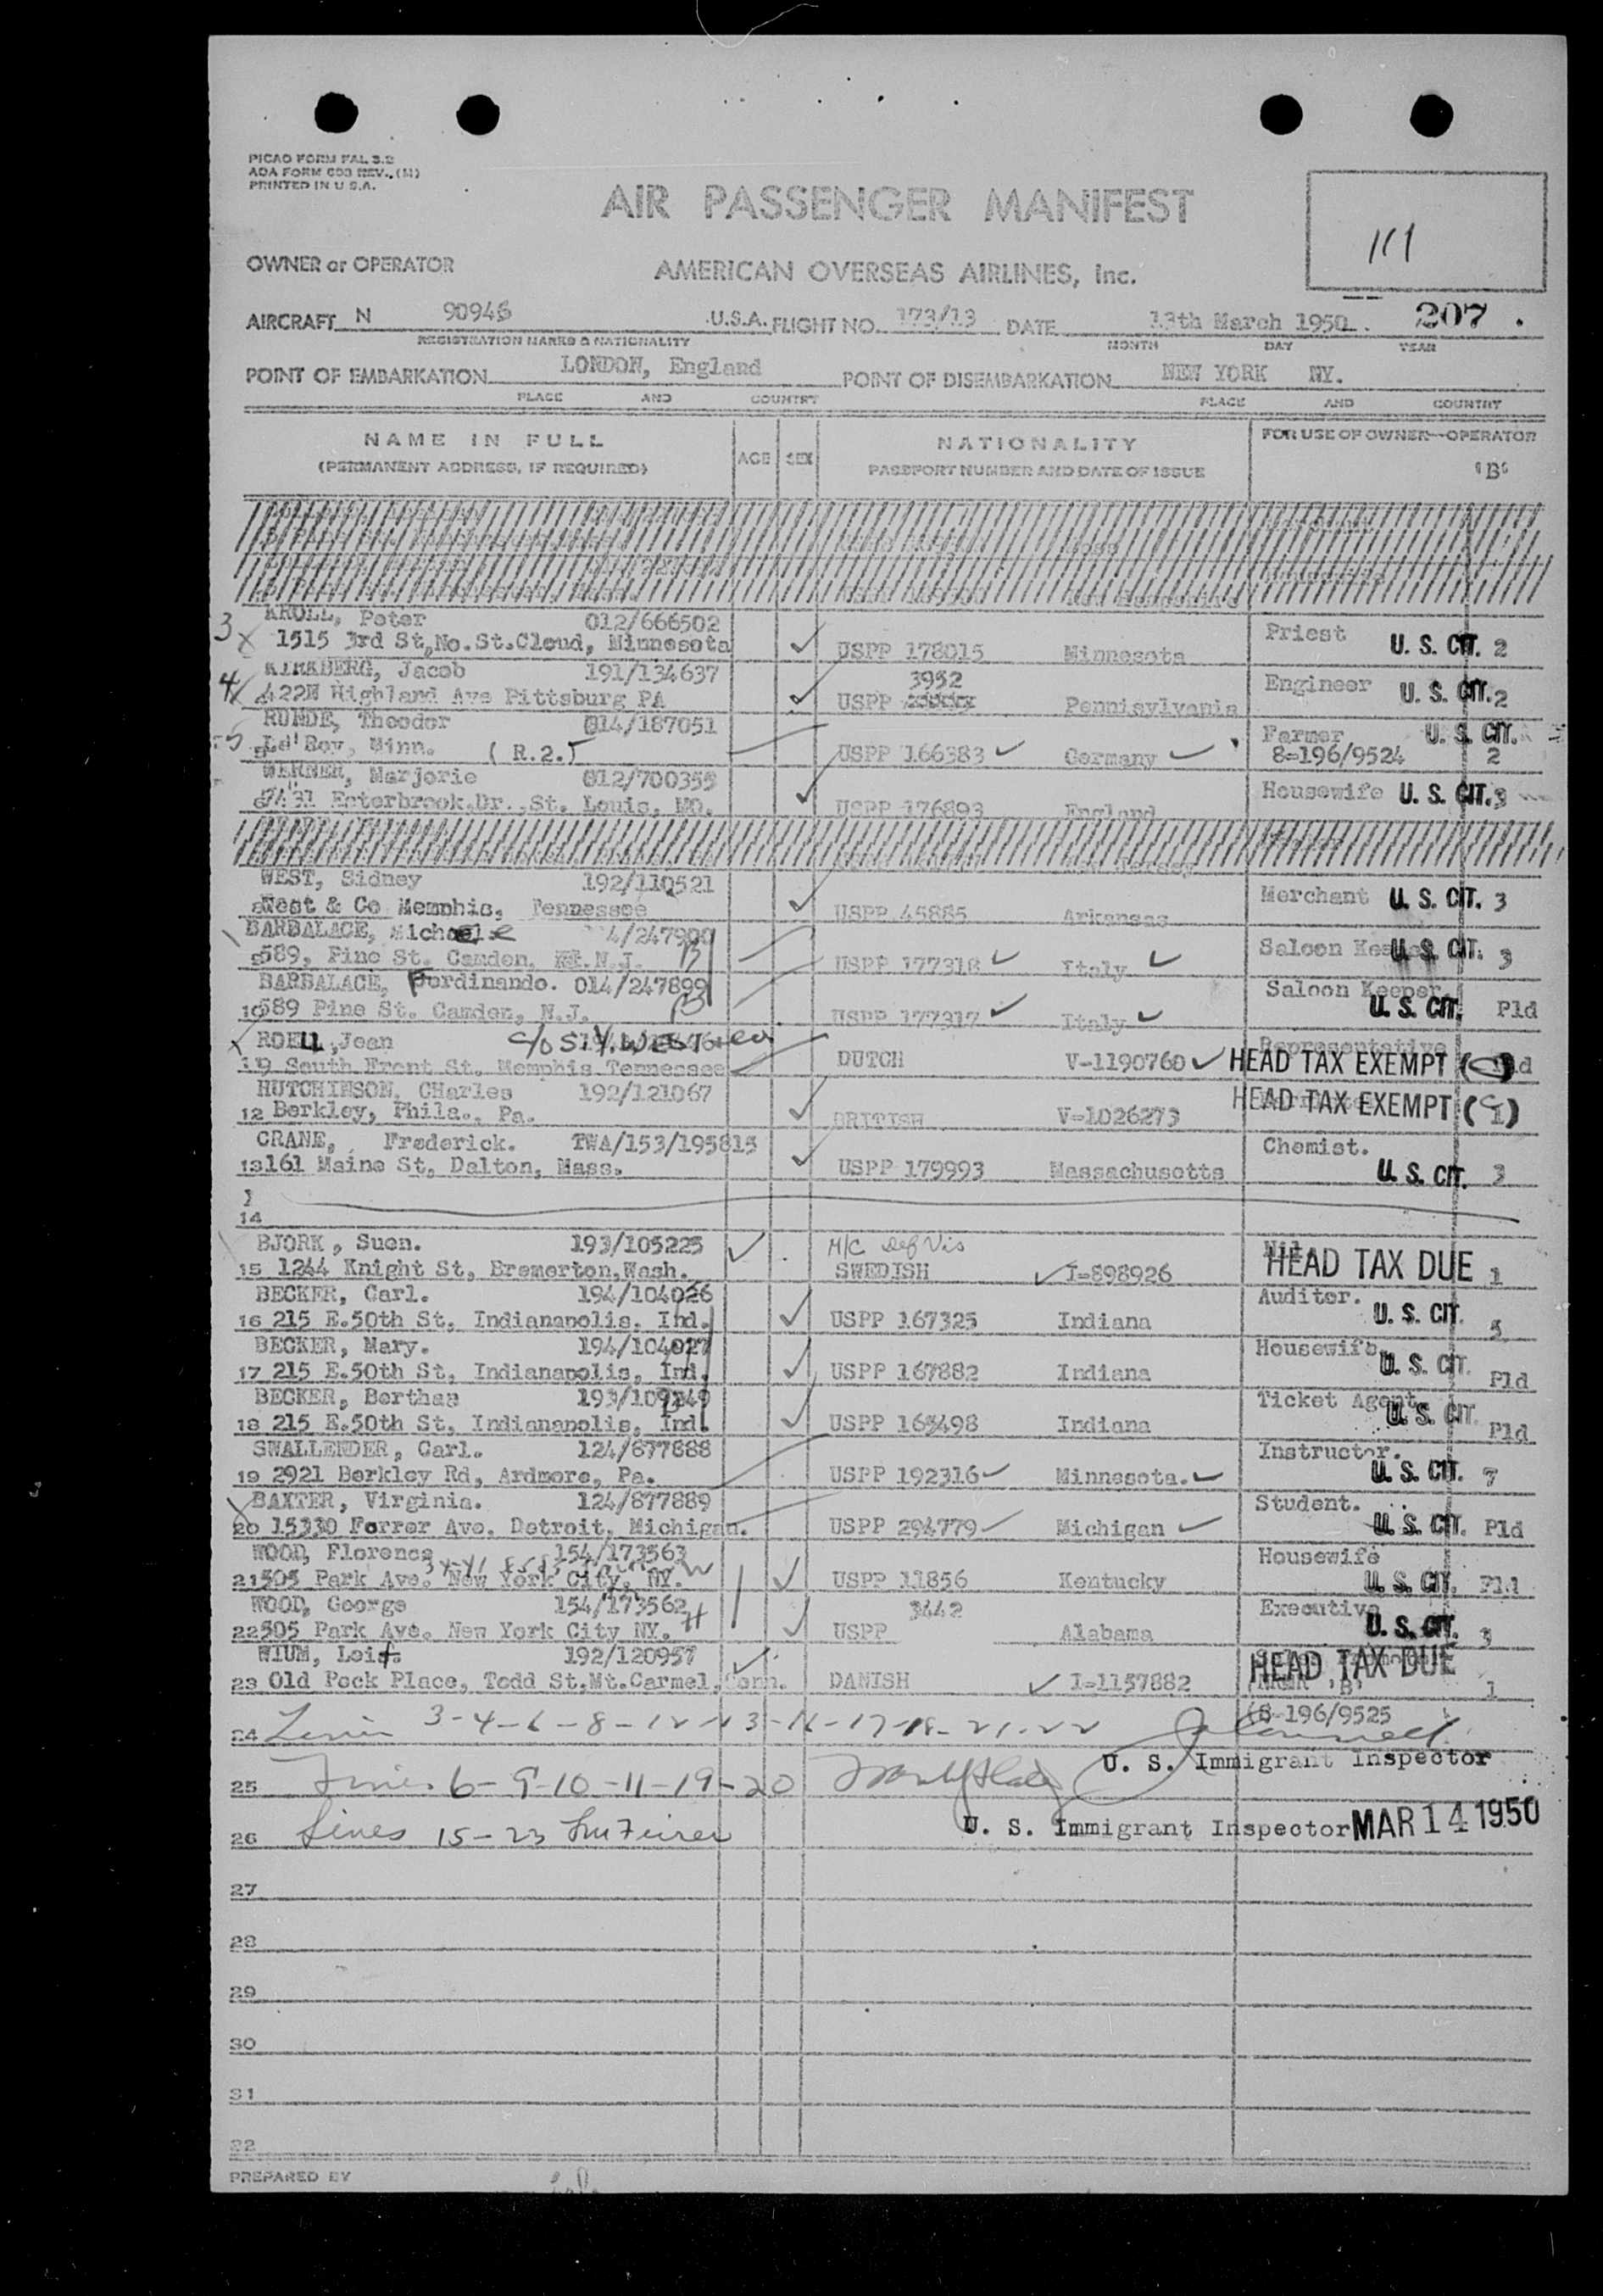 PICAO FORM FAL 3.2
AOA FORM 603 REV. (M)
PRINTED IN U.S.A.
AIR PASSENGER MANIFEST
111
OWNER or OPERATOR AMERICAN OVERSEAS AIRLINES, Inc.
AIRCRAFT N 90946 U.S.A. FLIGHT NO. 173/13 DATE 13th March 1950 207
REGISTRATION MARKS & NATIONALITY MONTH DAY YEAR
POINT OF EMBARKATION LONDON, England POINT OF DISEMBARKATION NEW YORK NY.
PLACE AND COUNTRY PLACE AND COUNTRY
NAME IN FULL AGE SEX NATIONALITY FOR USE OF OWNER-OPERATOR
(PERMANENT ADDRESS, IF REQUIRED) PASSPORT NUMBER AND DATE OF ISSUE 'B'
3 KROLL, Peter 012/666502 Priest
X 1515 3rd St, No. St.Cloud, Minnesota USPP 178015 Minnesota U. S. CIT. 2
4 KIRKBERG, Jacob 191/134637 3952 Engineer
X 422N Highland Ave Pittsburg PA USPP Pennisylvania U. S. CIT. 2
5 RUNDE, Theodor 014/187051 Farmer U. S. CIT.
Le' Roy, Minn. (R.2.) USPP 166383 Germany 8-196/9524 2
WERNER, Marjorie 012/700355 Housewife
7431 Esterbrook,Dr.,St. Louis, MO. USPP 176893 England U. S. CIT. 3
WEST, Sidney 192/110521 Merchant
8 West & Co Memphis, Tennessee USPP 45885 Arkansas U. S. CIT. 3
BARBALACE, Michael 4/247900 Saloon Keeper
9 589, Pine St. Camden, N.J. USPP 177318 Italy U. S. CIT. 3
BARBALACE, Ferdinando. 014/247899 Saloon Keeper.
10 589 Pine St. Camden, N.J. USPP 177317 Italy U. S. CIT. Pld
ROELL, Jean C/O S.Y. WEST & CO Representative
11 9 South Front St. Memphis Tennessee DUTCH V-1190760 HEAD TAX EXEMPT
HUTCHINSON, CHarles 192/121067 HEAD TAX EXEMPT
12 Berkley, Phila., Pa. BRITISH V-1026273
CRANE, Frederick. TWA/153/195815 Chemist.
13 161 Maine St, Dalton, Mass. USPP 179993 Massachusetts U. S. CIT. 3
14
BJORK, Suen. 193/105225 M/C Def Vis
15 1244 Knight St, Bremerton,Wash. SWEDISH I-898926 HEAD TAX DUE 1
BECKER, Carl. 194/104026 Auditor.
16 215 E.50th St, Indianapolis, Ind. USPP 167325 Indiana U. S. CIT.
BECKER, Mary. 194/104027 Housewife
17 215 E.50th St, Indianapolis, Ind. USPP 167882 Indiana U. S. CIT. Pld
BECKER, Berthas 193/109349 Ticket Agent
18 215 E.50th St, Indianapolis, Ind. USPP 165498 Indiana U. S. CIT. Pld
SWALLENDER, Carl. 124/877888 Instructor.
19 2921 Berkley Rd, Ardmore, Pa. USPP 192316 Minnesota. U. S. CIT. 7
BAXTER, Virginia. 124/877889 Student.
20 15330 Forrer Ave. Detroit, Michigan. USPP 294779 Michigan U. S. CIT. Pld
WOOD, Florence 154/173563 Housewife
21 505 Park Ave. New York City, NY. W USPP 11856 Kentucky U. S. CIT. Pld
WOOD, George 154/173562 3442 Executive
22 505 Park Ave. New York City NY. H USPP Alabama U. S. CIT. 3
WIUM, Leif. 192/120957 HEAD TAX DUE
23 Old Pock Place, Todd St.Mt.Carmel,Conn. DANISH I-1157882 1
24 3-4-6-8-12-13-16-17-18-21-22 8-196/9525
U. S. Immigrant Inspector
25 Lines 6-9-10-11-19-20
26 Lines 15-23 U. S. Immigrant Inspector MAR 14 1950
27
28
29
30
31
32
PREPARED BY